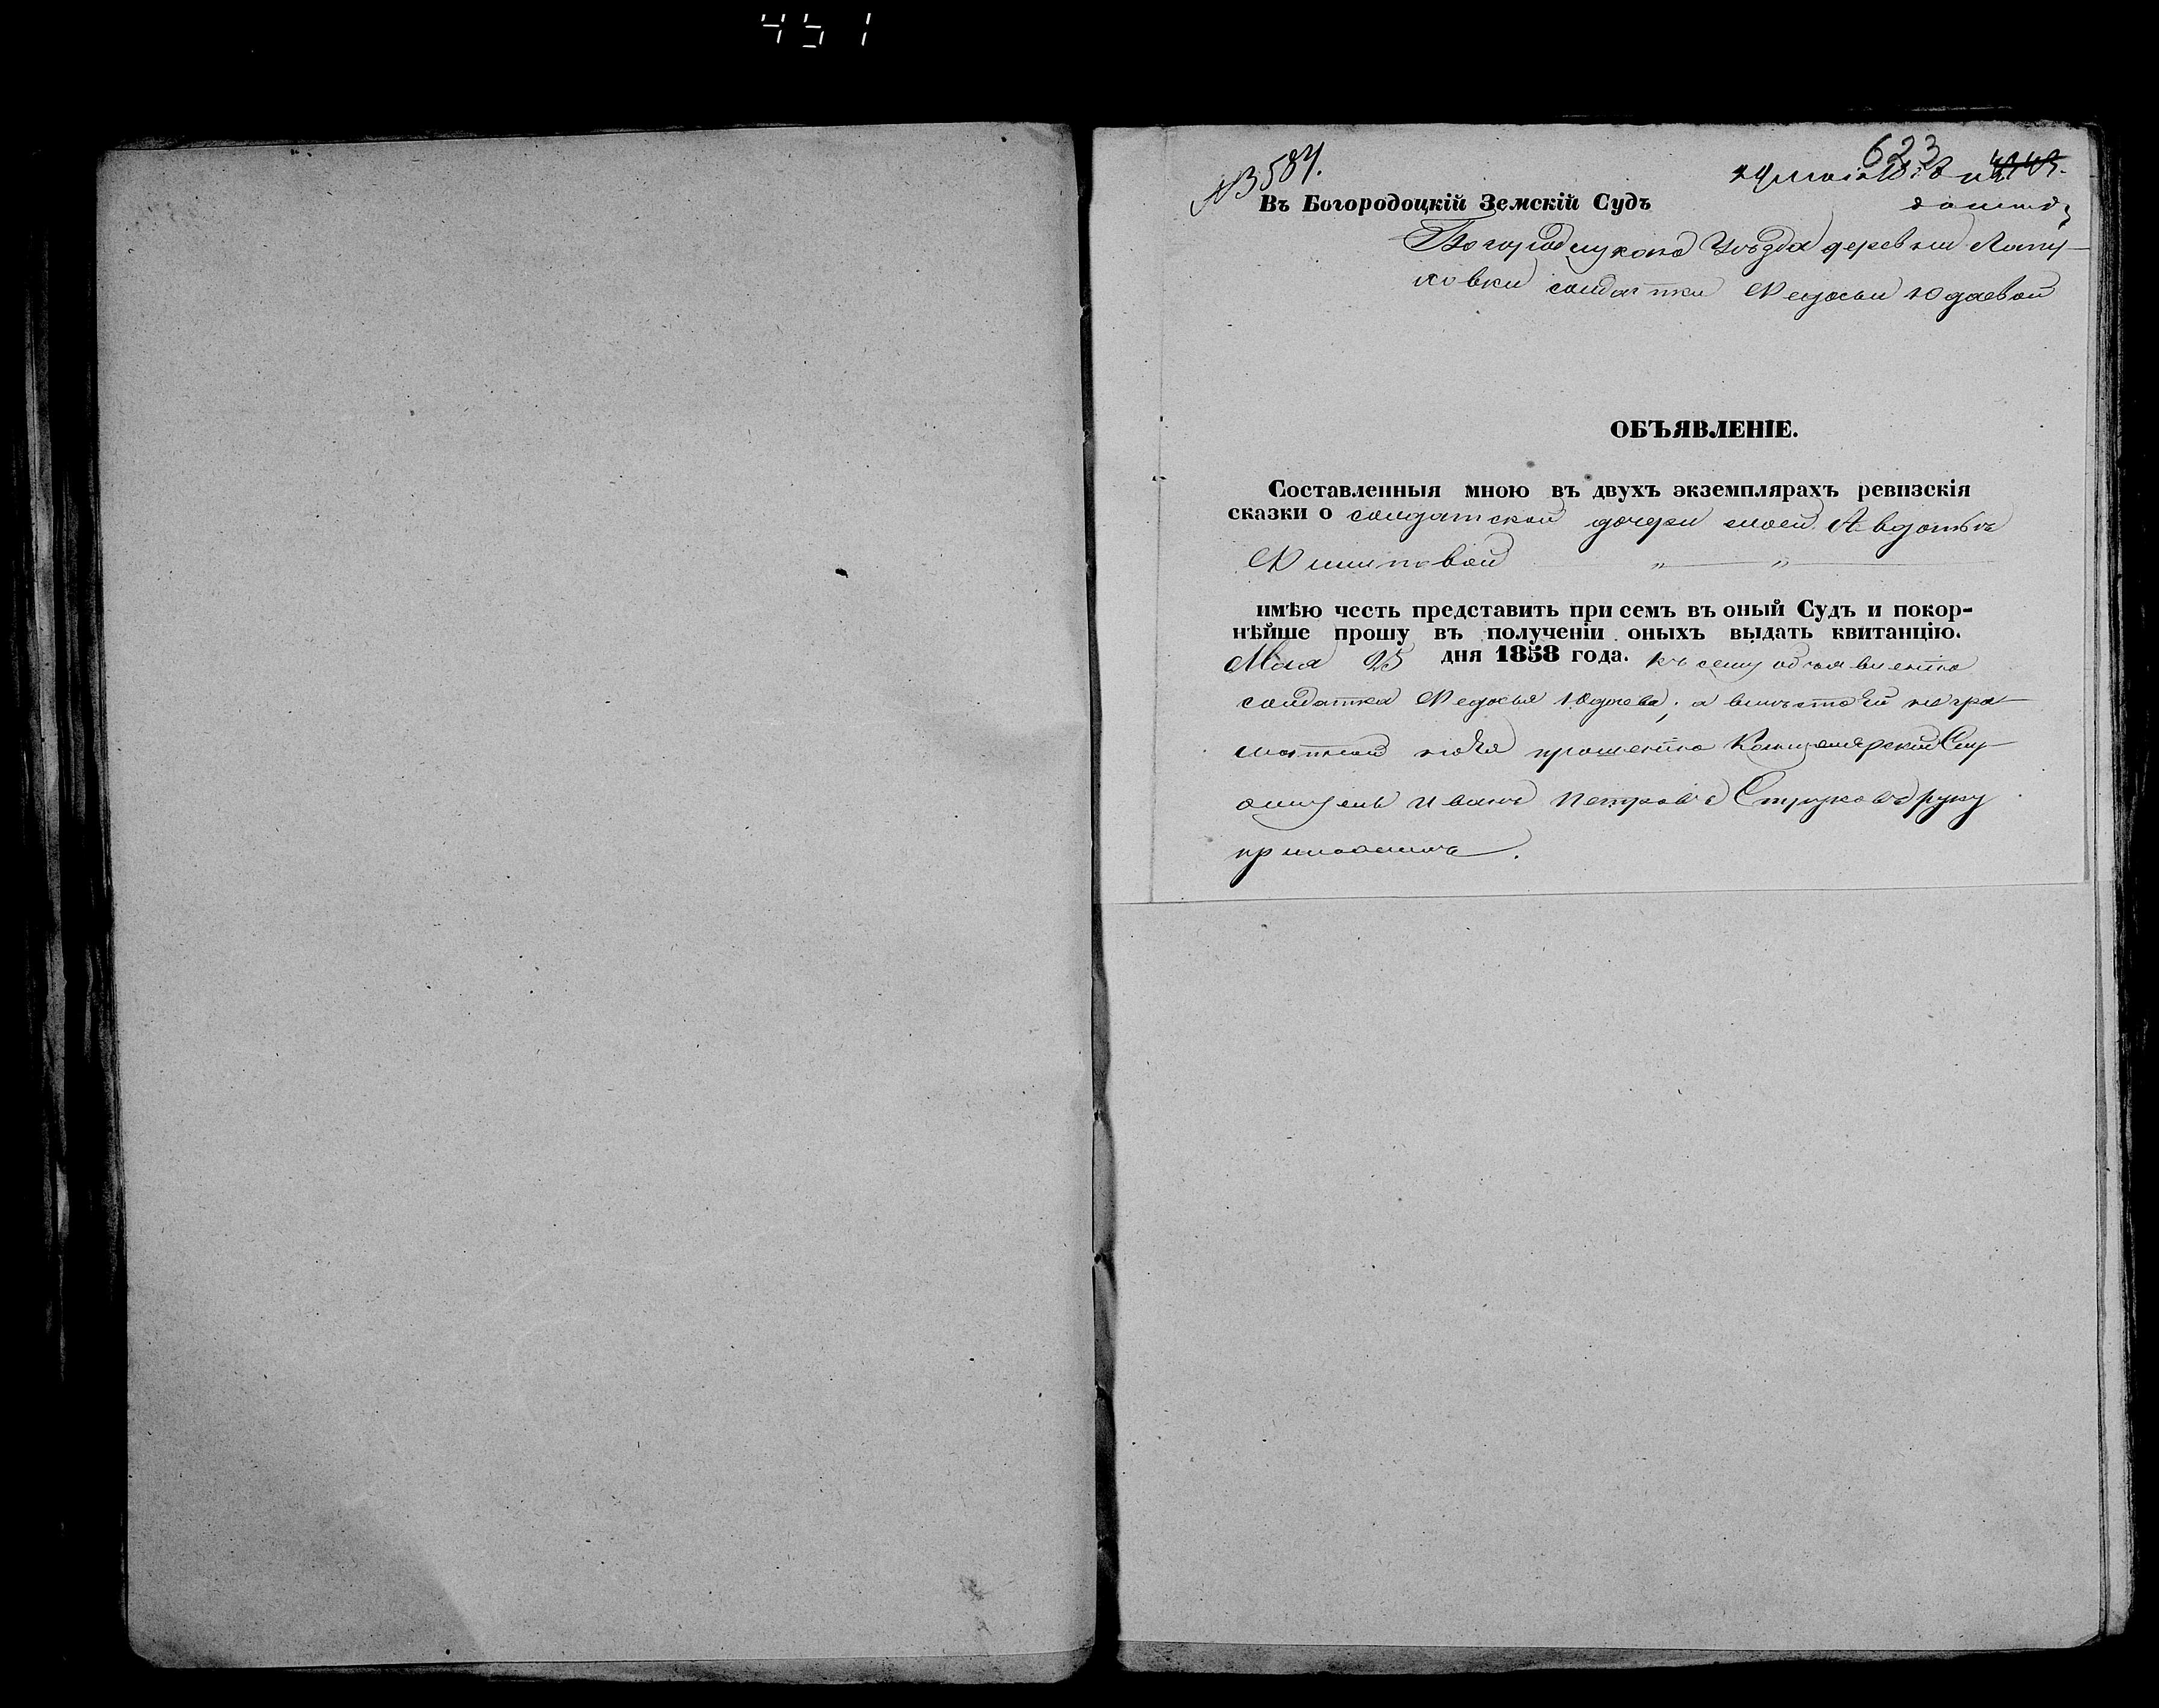 451
№ 3584.
623
Въ Богородоцкій Земскій Судъ
Богородицкаго Уѣзда деревни Лапу-
ховки солдатки Федосьи Юдаевой
ОБЪЯВЛЕНІЕ.
Составленныя мною въ двухъ экземплярахъ ревизскія
сказки о солдатской дочери моей Авдотьѣ
Филиповой
имѣю честь представить при семъ въ оный Судъ и покор-
нѣйше прошу въ полученіи оныхъ выдать квитанцію.
Мая 25 дня 1858 года. Къ сему объявленію
солдатка Федосья Юдаева, а вмѣсто ей негра-
матной по Ея прошенію Канцелярскій Слу-
житель Иванъ Петровъ Струковъ руку
приложилъ.